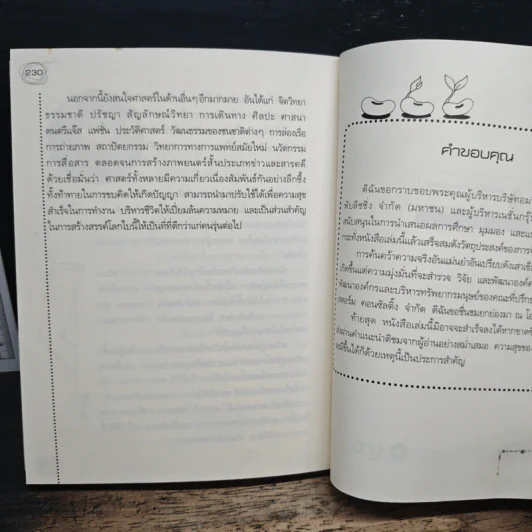 230
นอกจากนี้ยังสนใจศาสตร์ในด้านอื่นๆ อีกมากมาย อันได้แก่ จิตวิทยา
ธรรมชาติ ปรัชญา สัญลักษณ์วิทยา การเดินทาง ศิลปะ ศาสนา
ดนตรีแจ๊ส แฟชั่น ประวัติศาสตร์ วัฒนธรรมของชนชาติต่างๆ การล่องเรือ
การถ่ายภาพ สถาปัตยกรรม วิทยาการทางการแพทย์สมัยใหม่ นวัตกรรม
การสื่อสาร ตลอดจนการสร้างภาพยนตร์สั้นประเภทข่าวและสารคดี
ด้วยเชื่อมั่นว่า ศาสตร์ทั้งหลายมีความเกี่ยวเนื่องสัมพันธ์กันอย่างลึกซึ้ง
ทั้งท้าทายในการขบคิดให้เกิดปัญญา สามารถนำมาปรับใช้ได้เพื่อความสุข
สำเร็จในการทำงาน บริหารชีวิตให้เปี่ยมล้นความหมาย และเป็นส่วนสำคัญ
ในการสร้างสรรค์โลกใบนี้ให้เป็นที่ที่ดีกว่าแก่คนรุ่นต่อไป
คำขอบคุณ
ดิฉันขอกราบขอบพระคุณผู้บริหารบริษัทอม
พับลิชชิ่ง จำกัด (มหาชน) และผู้บริหารเนชั่นกรุ๊ป
สนับสนุนในการนำเสนอผลการศึกษา มุมมอง และแน
กระทั่งหนังสือเล่มนี้แล้วเสร็จสมดังวัตถุประสงค์ของการจั
การค้นคว้าความจริงอันแม่นยำอันเปรียบดังเสาเข็
เกิดขึ้นแต่ความมุ่งมั่นที่จะสำรวจ วิจัย และพัฒนาองค์ค
พัฒนาองค์กรและบริหารทรัพยากรมนุษย์ของคณะที่ปรึก
คอนซัลติ้ง จำกัด ดิฉันขอชื่นชมยกย่องมา ณ โอ
ท้ายสุด หนังสือเล่มนี้มิอาจจะสำเร็จลงได้หากขาดข้
คำแนะนำติชมจากผู้อ่านอย่างสม่ำเสมอ ความสุขของ
มีขึ้นได้ก็ด้วยเหตุนี้เป็นประการสำคัญ